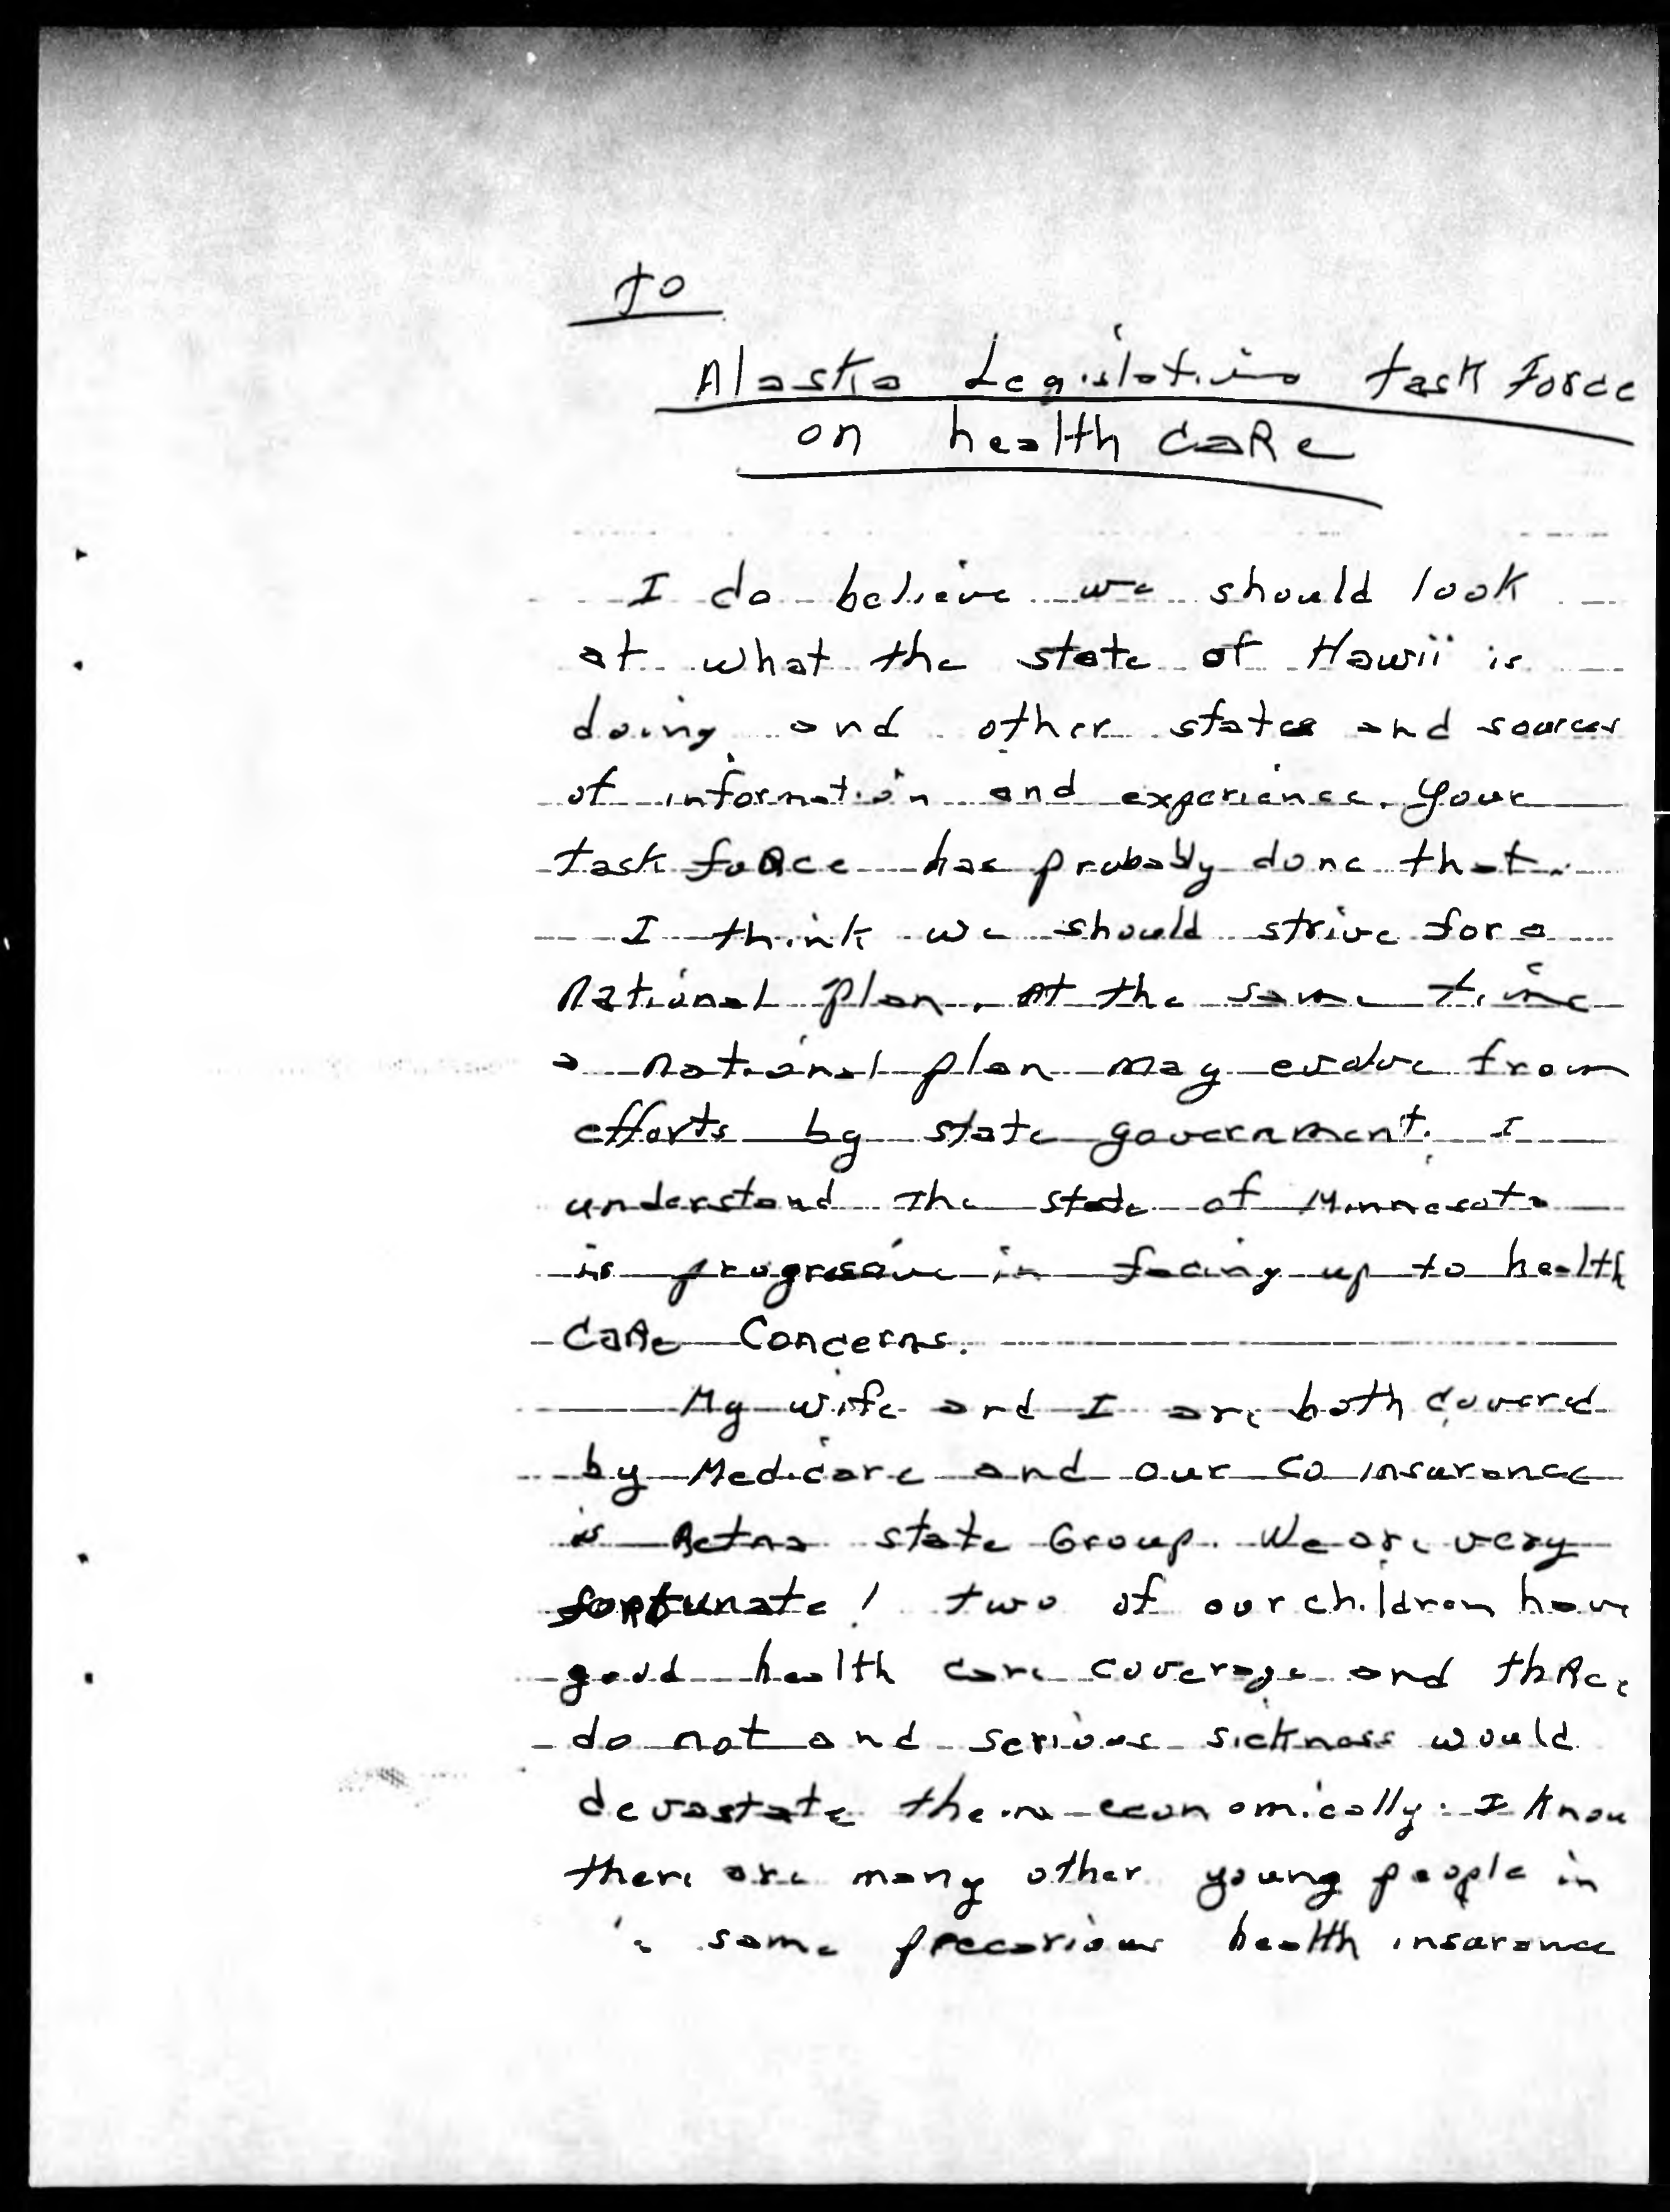 to
Alaska Legislative task Force
on health care
I do believe we should look
at what the state of Hawii is
doing and other states and sources
of information and experience. Your
task force has probably done that.
I think we should strive for a
National plan. At the same time
a national plan may evolve from
efforts by state government. I
understand the state of Minnesota
is progressive in facing up to health
care concerns.
My wife and I are both covered
by Medicare and our co insurance
is Aetna state Group. We are very
fortunate! two of our children have
good health care coverage and three
do not and serious sickness would
devastate them economically. I know
there are many other young people in
same precarious health insurance